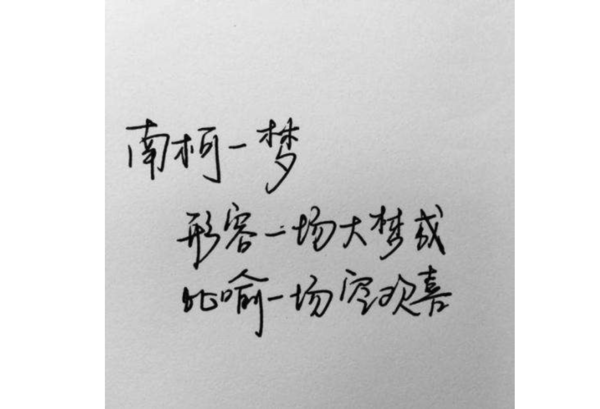 南柯一梦
形容一场大梦或
比喻一场空欢喜